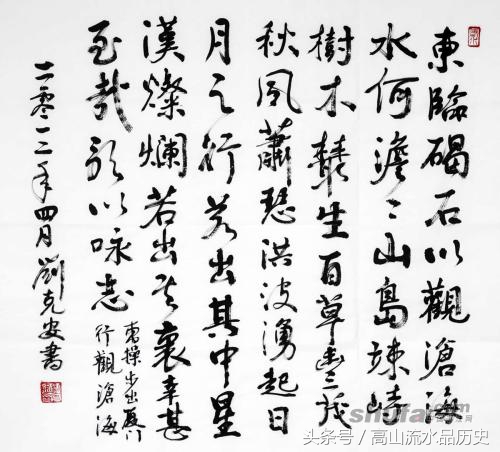 東臨碣石以觀滄海
水何澹々山島竦峙
樹木叢生百草豐茂
秋風蕭瑟洪波湧起日
月之行若出其中星
漢燦爛若出其裏幸甚
至哉歌以咏志
曹操步出厦门
行觀滄海
二零一二年四月劉克安書
头条号 / 高山流水品历史